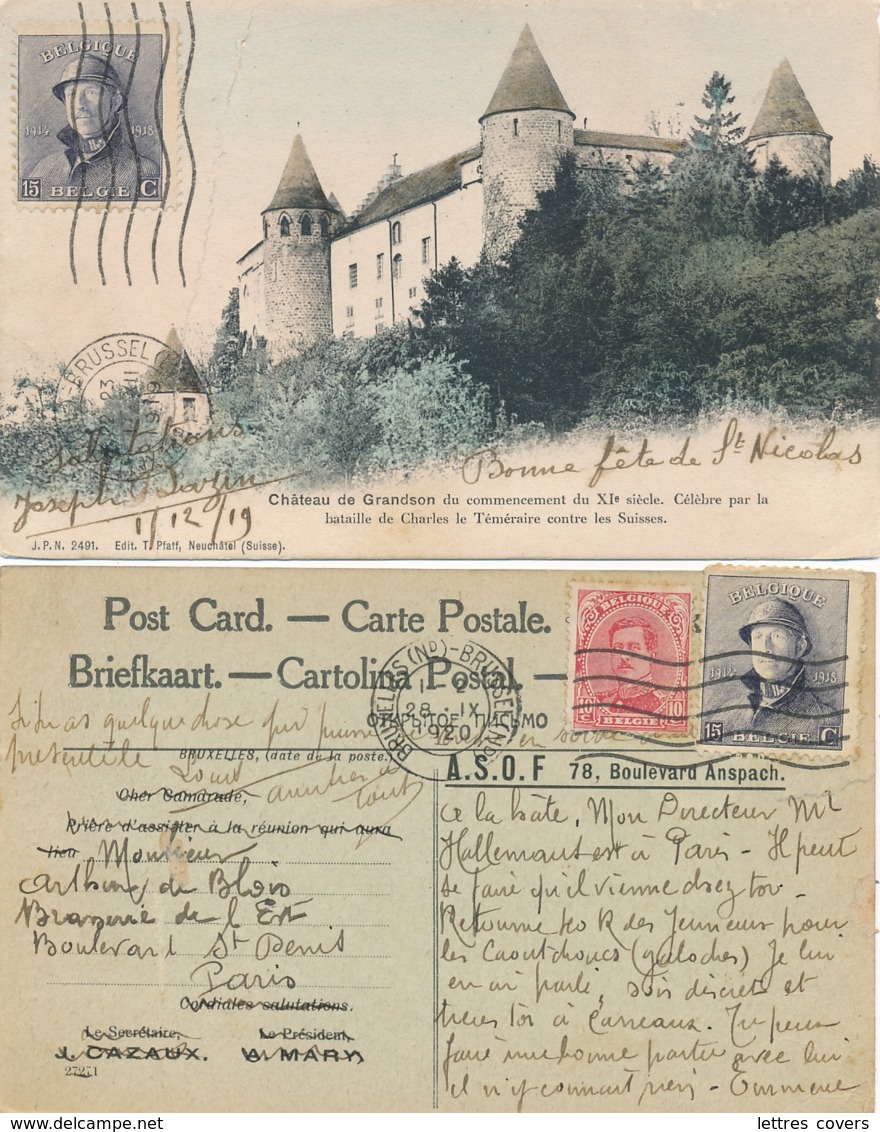 BELGIQUE
1914 1918
15 BELGIE C
BRUSSEL
23
salutations
Joseph Bazin
1/12/19
Bonne fête de St Nicolas
Château de Grandson du commencement du XIe siècle. Célèbre par la
bataille de Charles le Téméraire contre les Suisses.
J.P.N. 2491. Edit. T. Pfaff, Neuchâtel (Suisse).
Post Card. — Carte Postale.
Briefkaart. — Cartolina Postal. —
ОТКРЫТОЕ ПИСЬМО
BRUXELLES (ND) - BRUSSEL (ND)
28 IX
1920
BELGIQUE
10 C BELGIE 10 C
BELGIQUE
1914 1918
15 BELGIE C
Si tu as quelque chose qui
BRUXELLES, (date de la poste.)
Cher Camarade,
Prière d'assister à la réunion qui aura
lieu
Monsieur
Arthur de Blois
Brasserie de l'Est
Boulevard St Denis
Paris
Cordiales salutations.
Le Secrétaire, Le Président,
J. CAZAUX. A. MARY.
27271
A.S.O.F 78, Boulevard Anspach.
à la hâte, Mon Directeur Mr
Hallemans est à Paris - Il peut
se faire qu'il vienne chez toi -
Retourne des Jeunieux pour
les Caoutchoucs (galoches) Je lui
en ai parlé, sois discret et
à Carreaux. Tu peux
faire une bonne partie avec lui
il n'y connait rien -
lettres covers